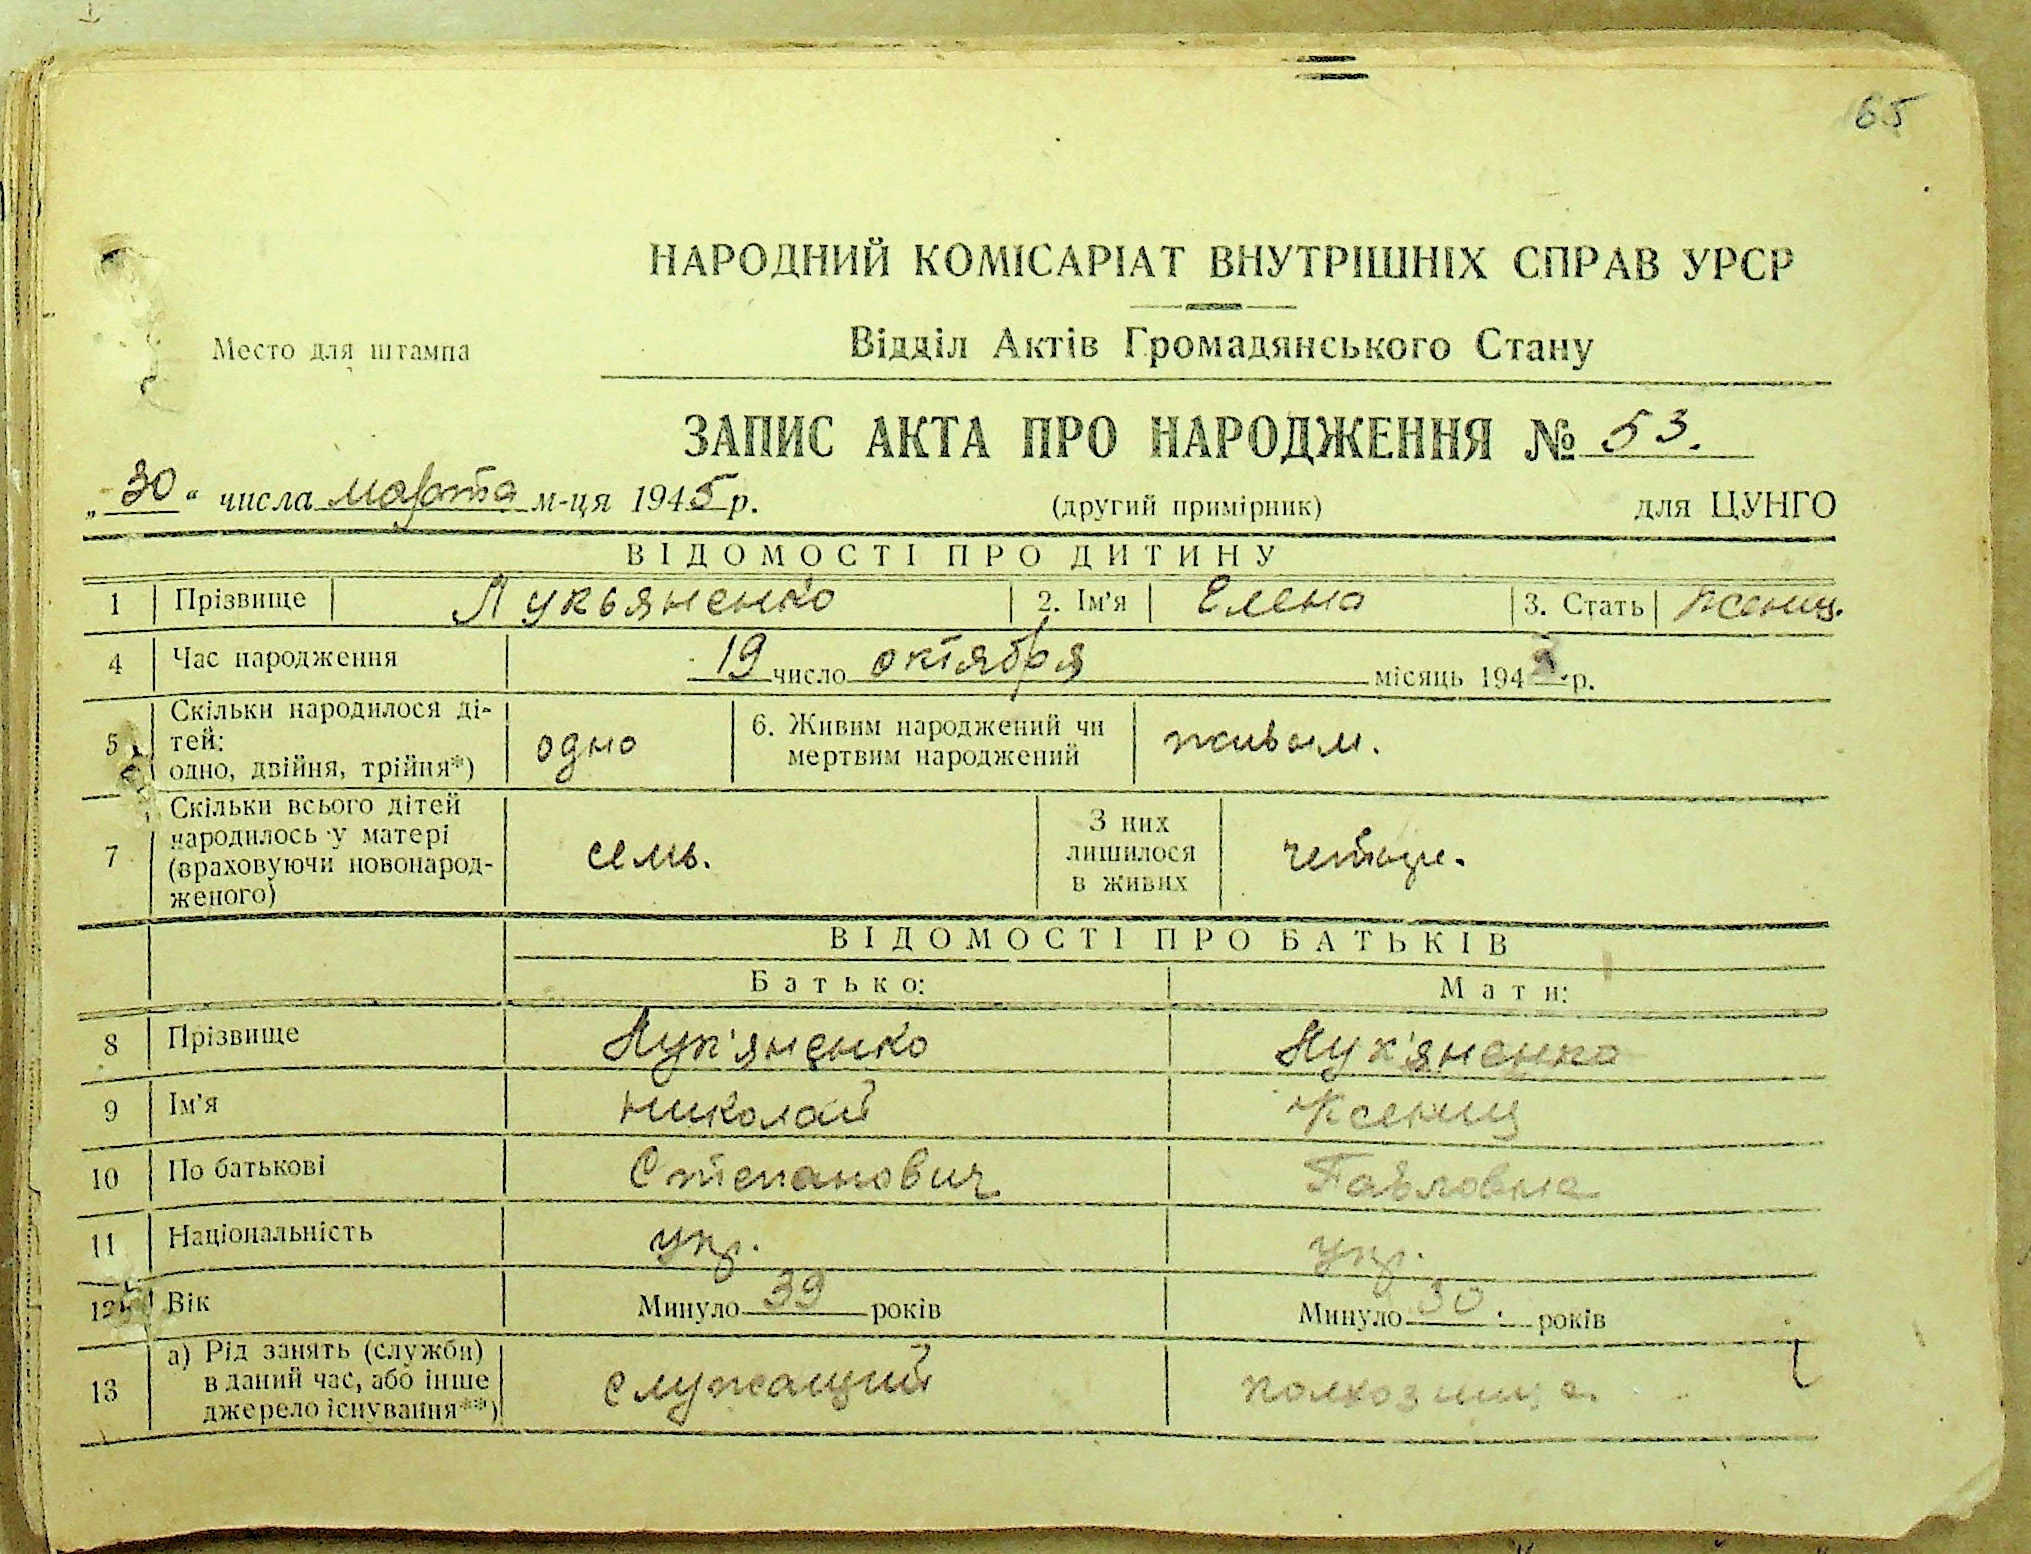 65
НАРОДНИЙ КОМІСАРІАТ ВНУТРІШНІХ СПРАВ УРСР
Место для штампа
Відділ Актів Громадянського Стану
ЗАПИС АКТА ПРО НАРОДЖЕННЯ № 53.
„30“ числа марта м-ця 1945 р.
(другий примірник) для ЦУНГО
ВІДОМОСТІ ПРО ДИТИНУ
1 Прізвище Лукьяненко 2. Ім'я Елена 3. Стать женщ.
4 Час народження 19 число октября місяць 194 р.
5 Скільки народилося ді-
тей:
одно, двійня, трійня*) одно
6. Живим народжений чи
мертвим народжений живым.
7 Скільки всього дітей
народилось у матері
(враховуючи новонарод-
женого) семь.
З них
лишилося
в живих четыре.
ВІДОМОСТІ ПРО БАТЬКІВ
Батько: Мати:
8 Прізвище Лук'яненко Лук'яненко
9 Ім'я Николай Ксения
10 По батькові Степанович Павловна
11 Національність укр. укр.
12 Вік Минуло 39 років Минуло 30 років
13 а) Рід занять (служби)
в даний час, або інше
джерело існування**) служащий колхозница.